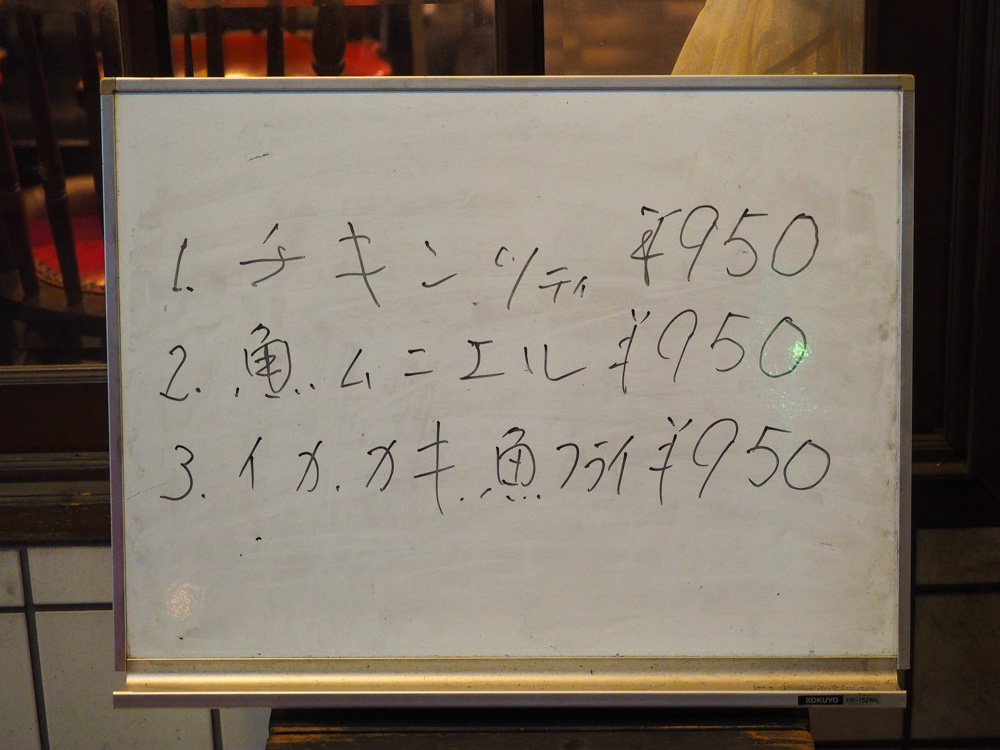 1. チキンソティ ¥950
2. 魚ムニエル ¥950
3. イカ.カキ.魚フライ ¥950
KOKUYO